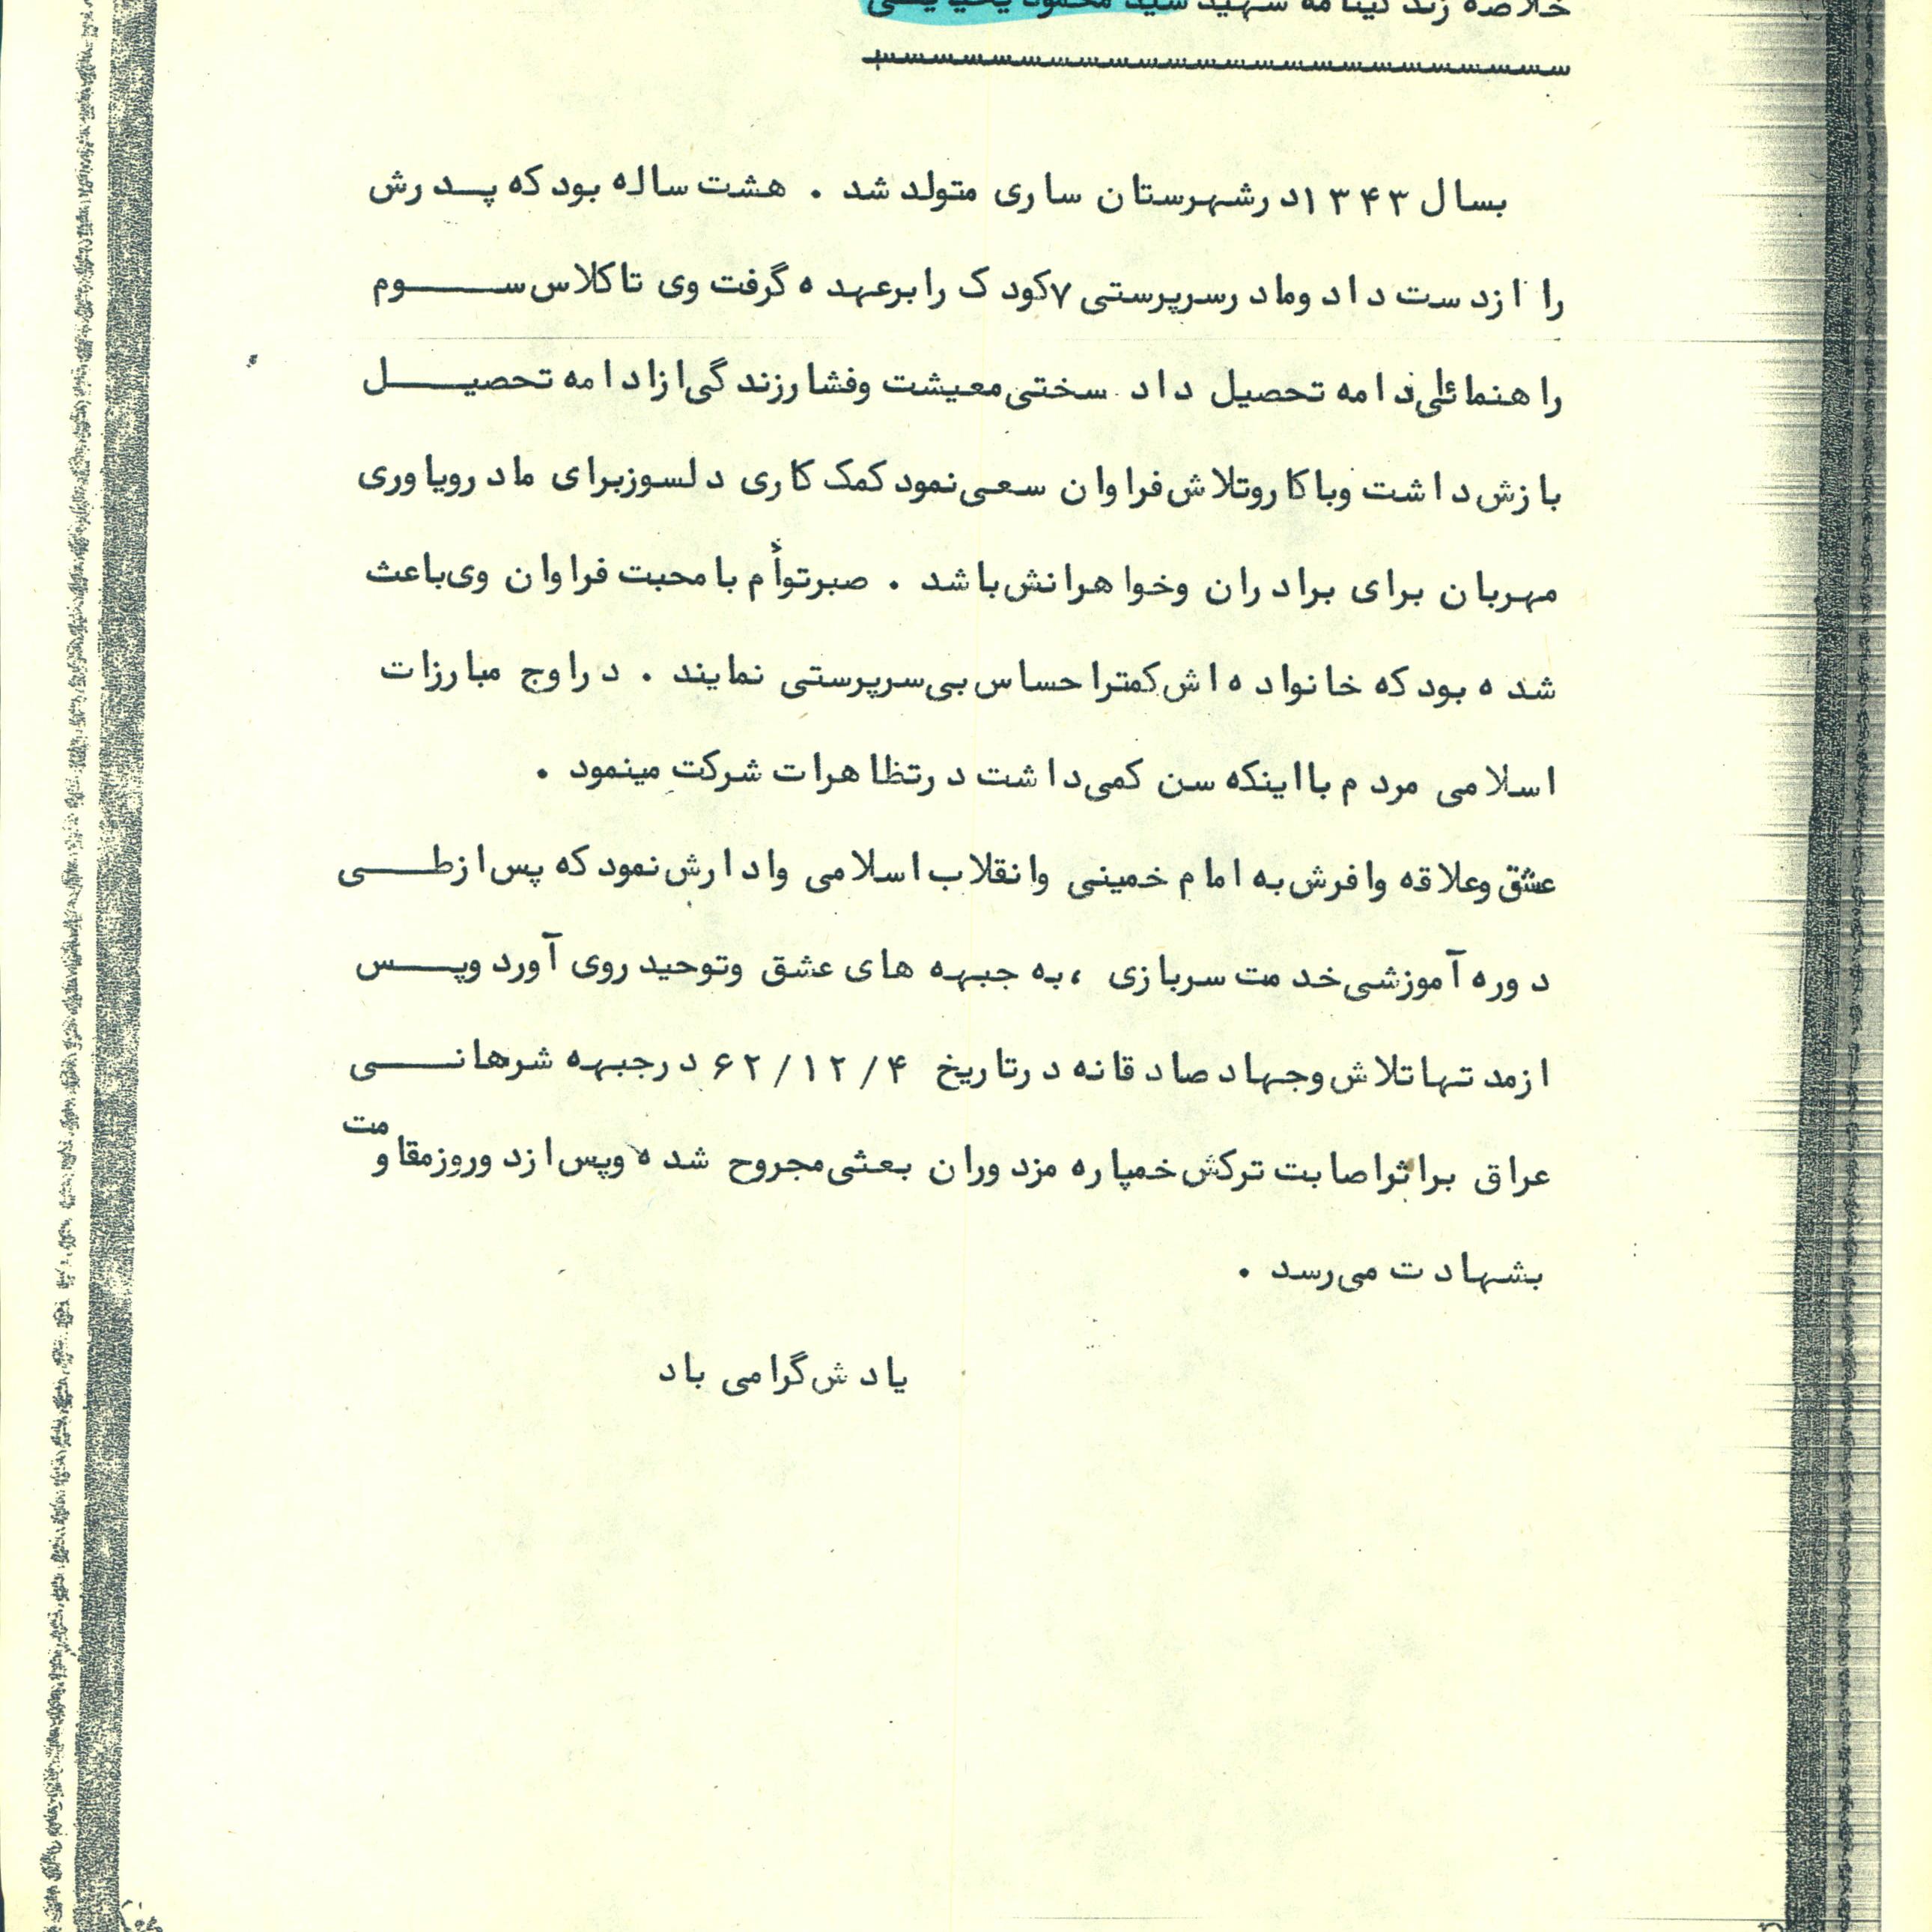 خلاصه زندگینامه شهید سید محمود یحیایی
بسال ۱۳۴۳ در شهرستان ساری متولد شد . هشت ساله بود که پدرش
را از دست داد و مادر سرپرستی ۷ کودک را برعهده گرفت وی تا کلاس سوم
راهنمائی ادامه تحصیل داد سختی معیشت وفشار زندگی از ادامه تحصیل
بازش داشت وبا کار وتلاش فراوان سعی نمود کمک کاری دلسوز برای مادر ویاوری
مهربان برای برادران وخواهرانش باشد . صبر توأم با محبت فراوان وی باعث
شده بود که خانواده اش کمتر احساس بی سرپرستی نمایند . در اوج مبارزات
اسلامی مردم با اینکه سن کمی داشت در تظاهرات شرکت مینمود .
عشق وعلاقه وافرش به امام خمینی وانقلاب اسلامی وادارش نمود که پس از طی
دوره آموزشی خدمت سربازی ، به جبهه های عشق وتوحید روی آورد وپس
از مدتها تلاش وجهاد صادقانه در تاریخ ۶۲/۱۲/۴ در جبهه شرهانی
عراق براثر اصابت ترکش خمپاره مزدوران بعثی مجروح شده وپس از دو روز مقاومت
بشهادت می رسد .
یادش گرامی باد